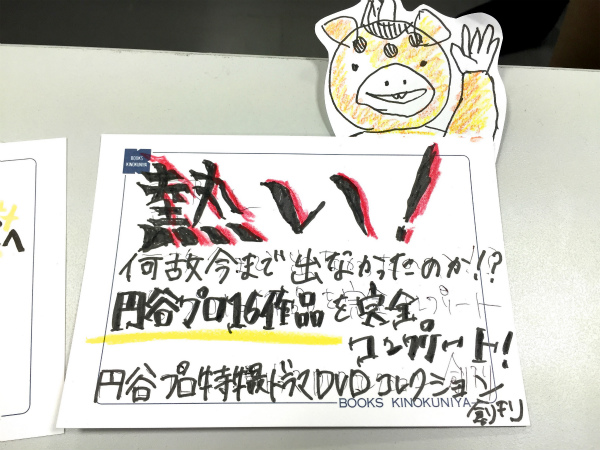 BOOKS
KINOKUNIYA
熱い!
何故今まで出なかったのか!?
円谷プロ16作品を完全
コンプリート!
円谷プロ特撮ドラマDVDコレクション
創刊
BOOKS KINOKUNIYA